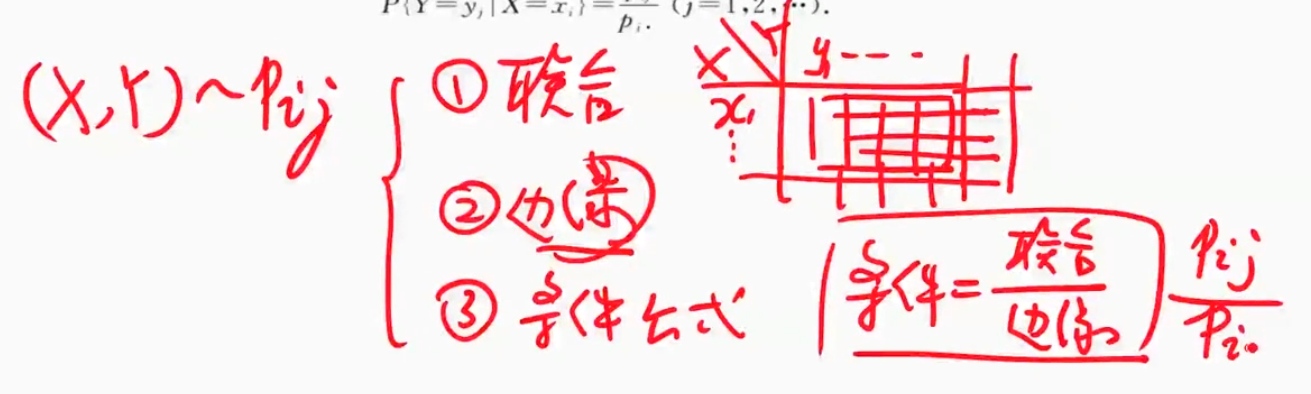 P{Y=y_j|X=x_i}=p_{ij}/p_{i·} (j=1,2,…).
(X,Y)~P_{ij}
① 联合
② 边缘
③ 条件公式
X Y y_1 ----
x_1
⋮
条件=联合/边缘 P_{ij}/P_{i·}